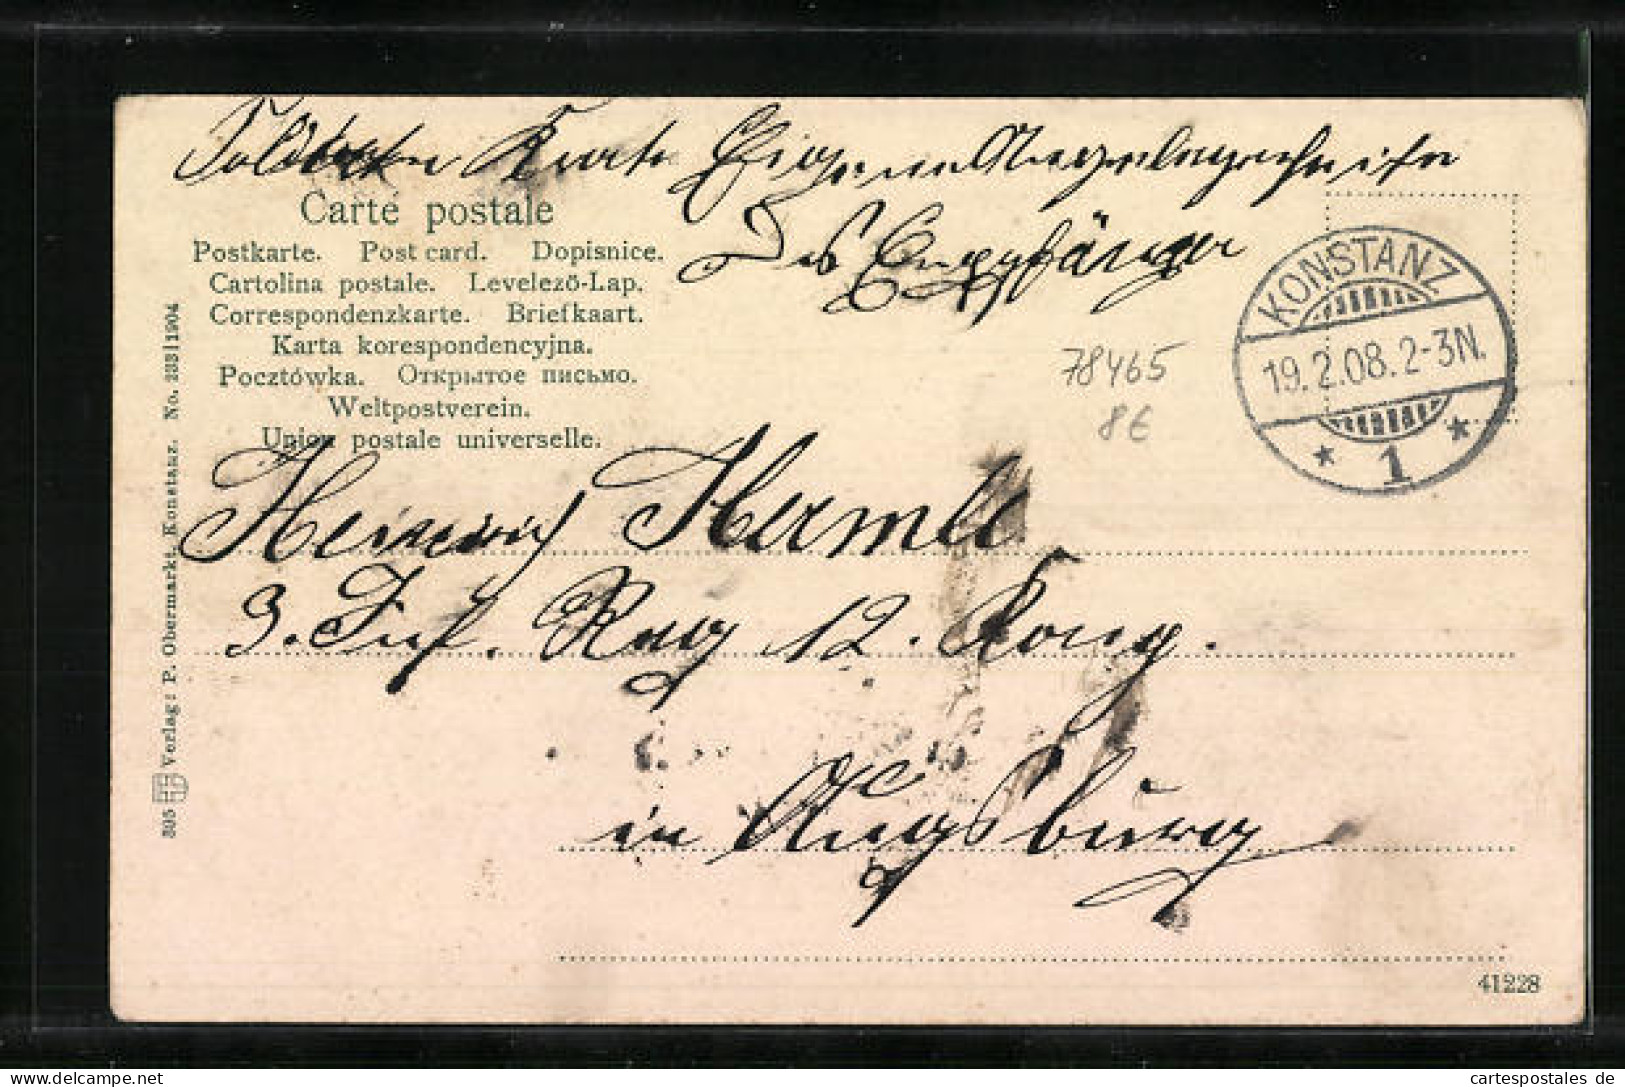 Soldaten Karte Eigene Angelegenheiten
Des Empfänger
Carte postale
Postkarte. Post card. Dopisnice.
Cartolina postale. Levelező-Lap.
Correspondenzkarte. Briefkaart.
Karta korespondencyjna.
Pocztówka. Открытое письмо.
Weltpostverein.
Union postale universelle.
KONSTANZ
19.2.08.2-3N.
* 1 *
78465
8€
Heinrich Hermle
3. Inf. Reg 12. Komg.
in Augsburg
305 Verlag: P. Obermarkt, Konstanz. No. 233|1904
41228
cartespostales de